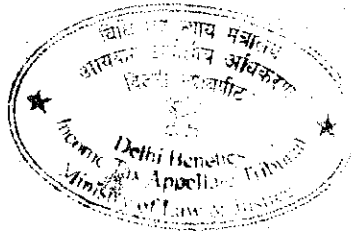 न्याय मंत्रालय
आयकर अपीलीय अधिकरण
दिल्ली
Delhi Benches
Income Tax Appellate Tribunal
Ministry of Law & Justice